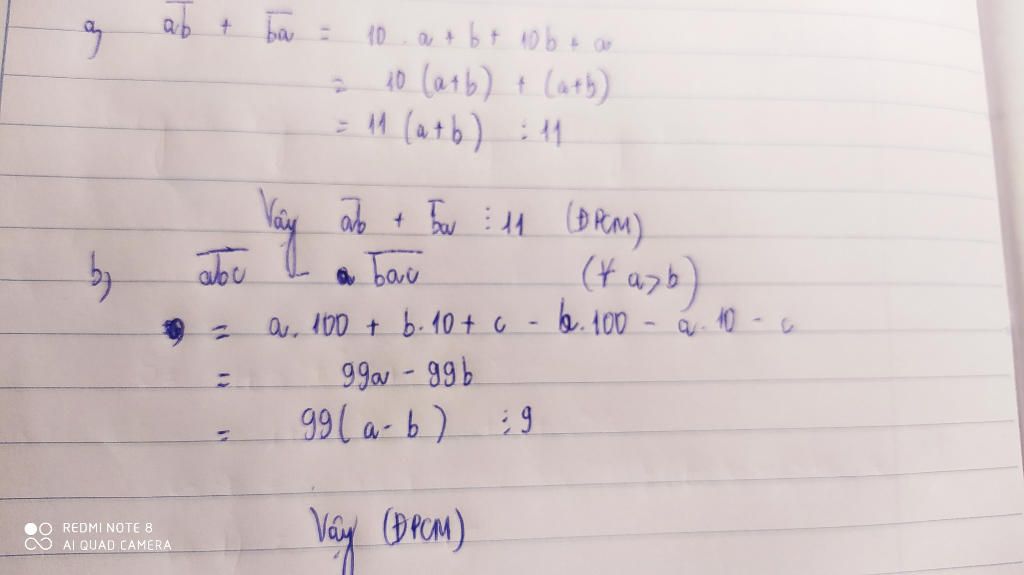 a, \overline{ab} + \overline{ba} = 10 . a + b + 10b + a
= 10 (a+b) + (a+b)
= 11 (a+b) ⋮ 11
Vậy \overline{ab} + \overline{ba} ⋮ 11 (ĐPCM)
b, \overline{abc} - \overline{bac} (∀ a>b)
= a.100 + b.10 + c - b.100 - a.10 - c
= 99a - 99b
= 99(a-b) ⋮ 9
Vậy (ĐPCM)
REDMI NOTE 8
AI QUAD CAMERA